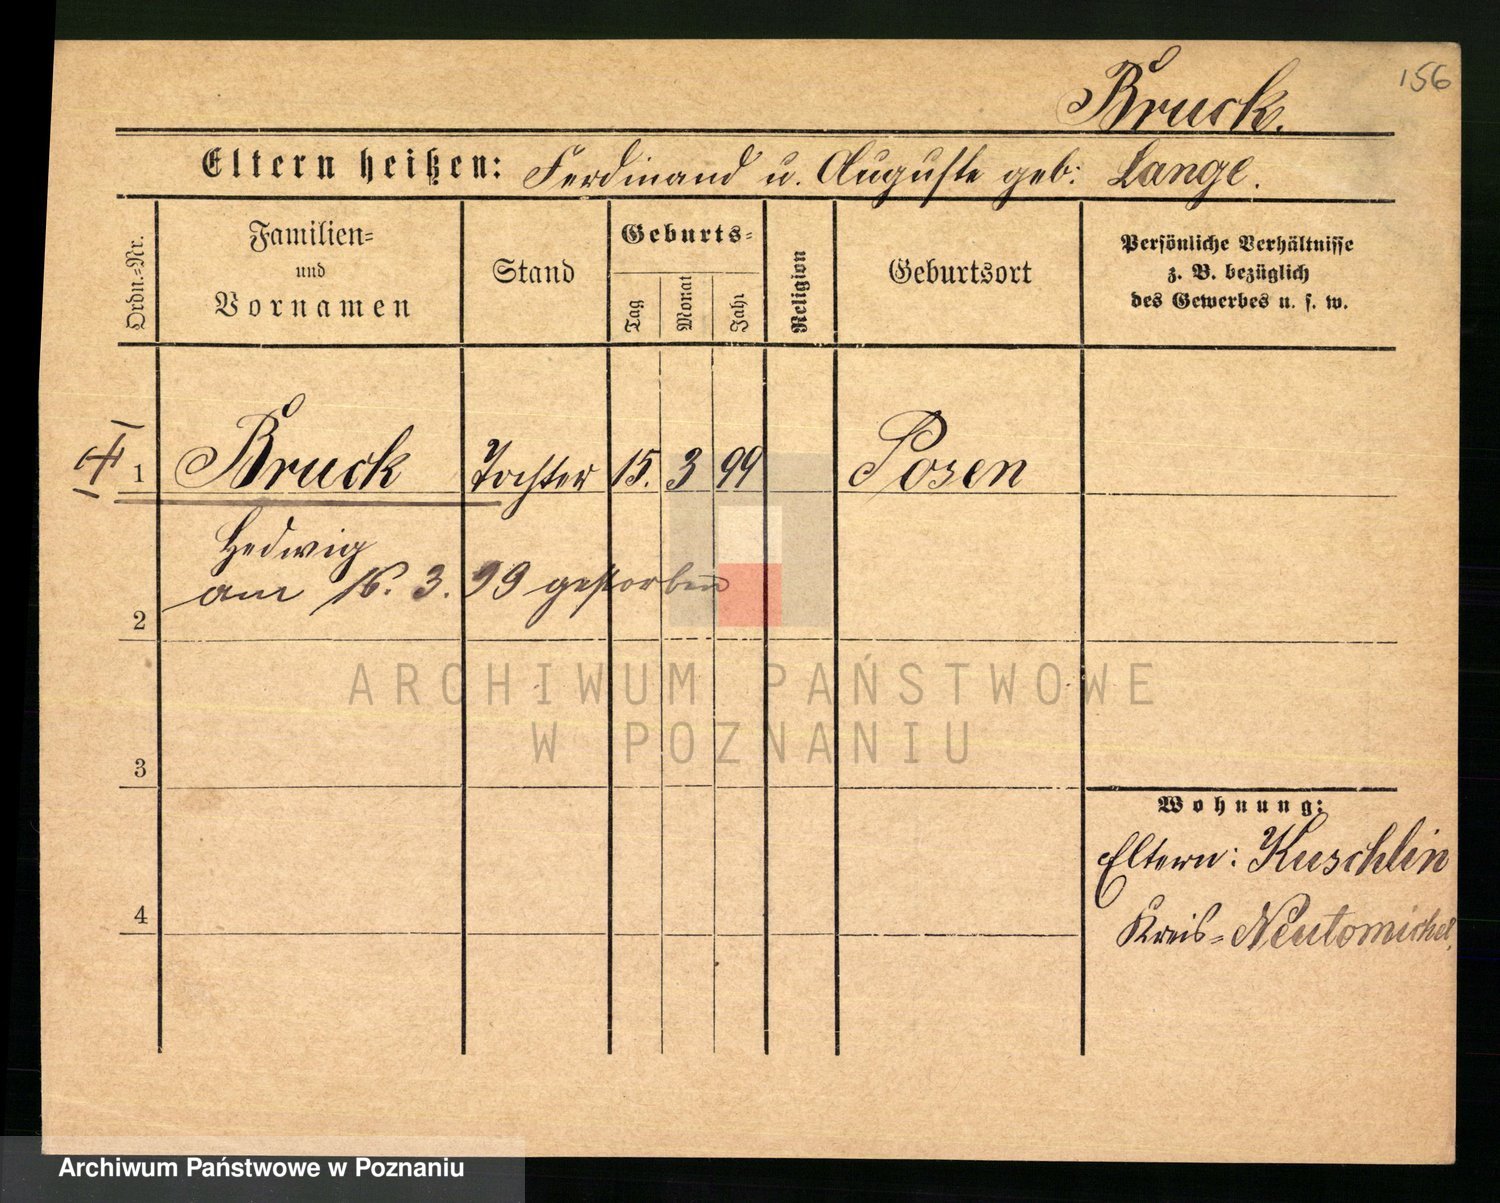 156
Bruck.
Eltern heißen: Ferdinand u. Auguste geb: Lange.
Ordn.=Nr.
Familien=
und
Vornamen
Stand
Geburts=
Tag
Monat
Jahr
Religion
Geburtsort
Persönliche Verhältnisse
z. B. bezüglich
des Gewerbes u. s. w.
1 Bruck Tochter 15. 3 99 Posen
Hedwig
am 16. 3. 99 gestorben
2
3
4
Wohnung:
Eltern: Kuschlin
Kreis= Neutomischel.
ARCHIWUM PAŃSTWOWE
W POZNANIU
Archiwum Państwowe w Poznaniu